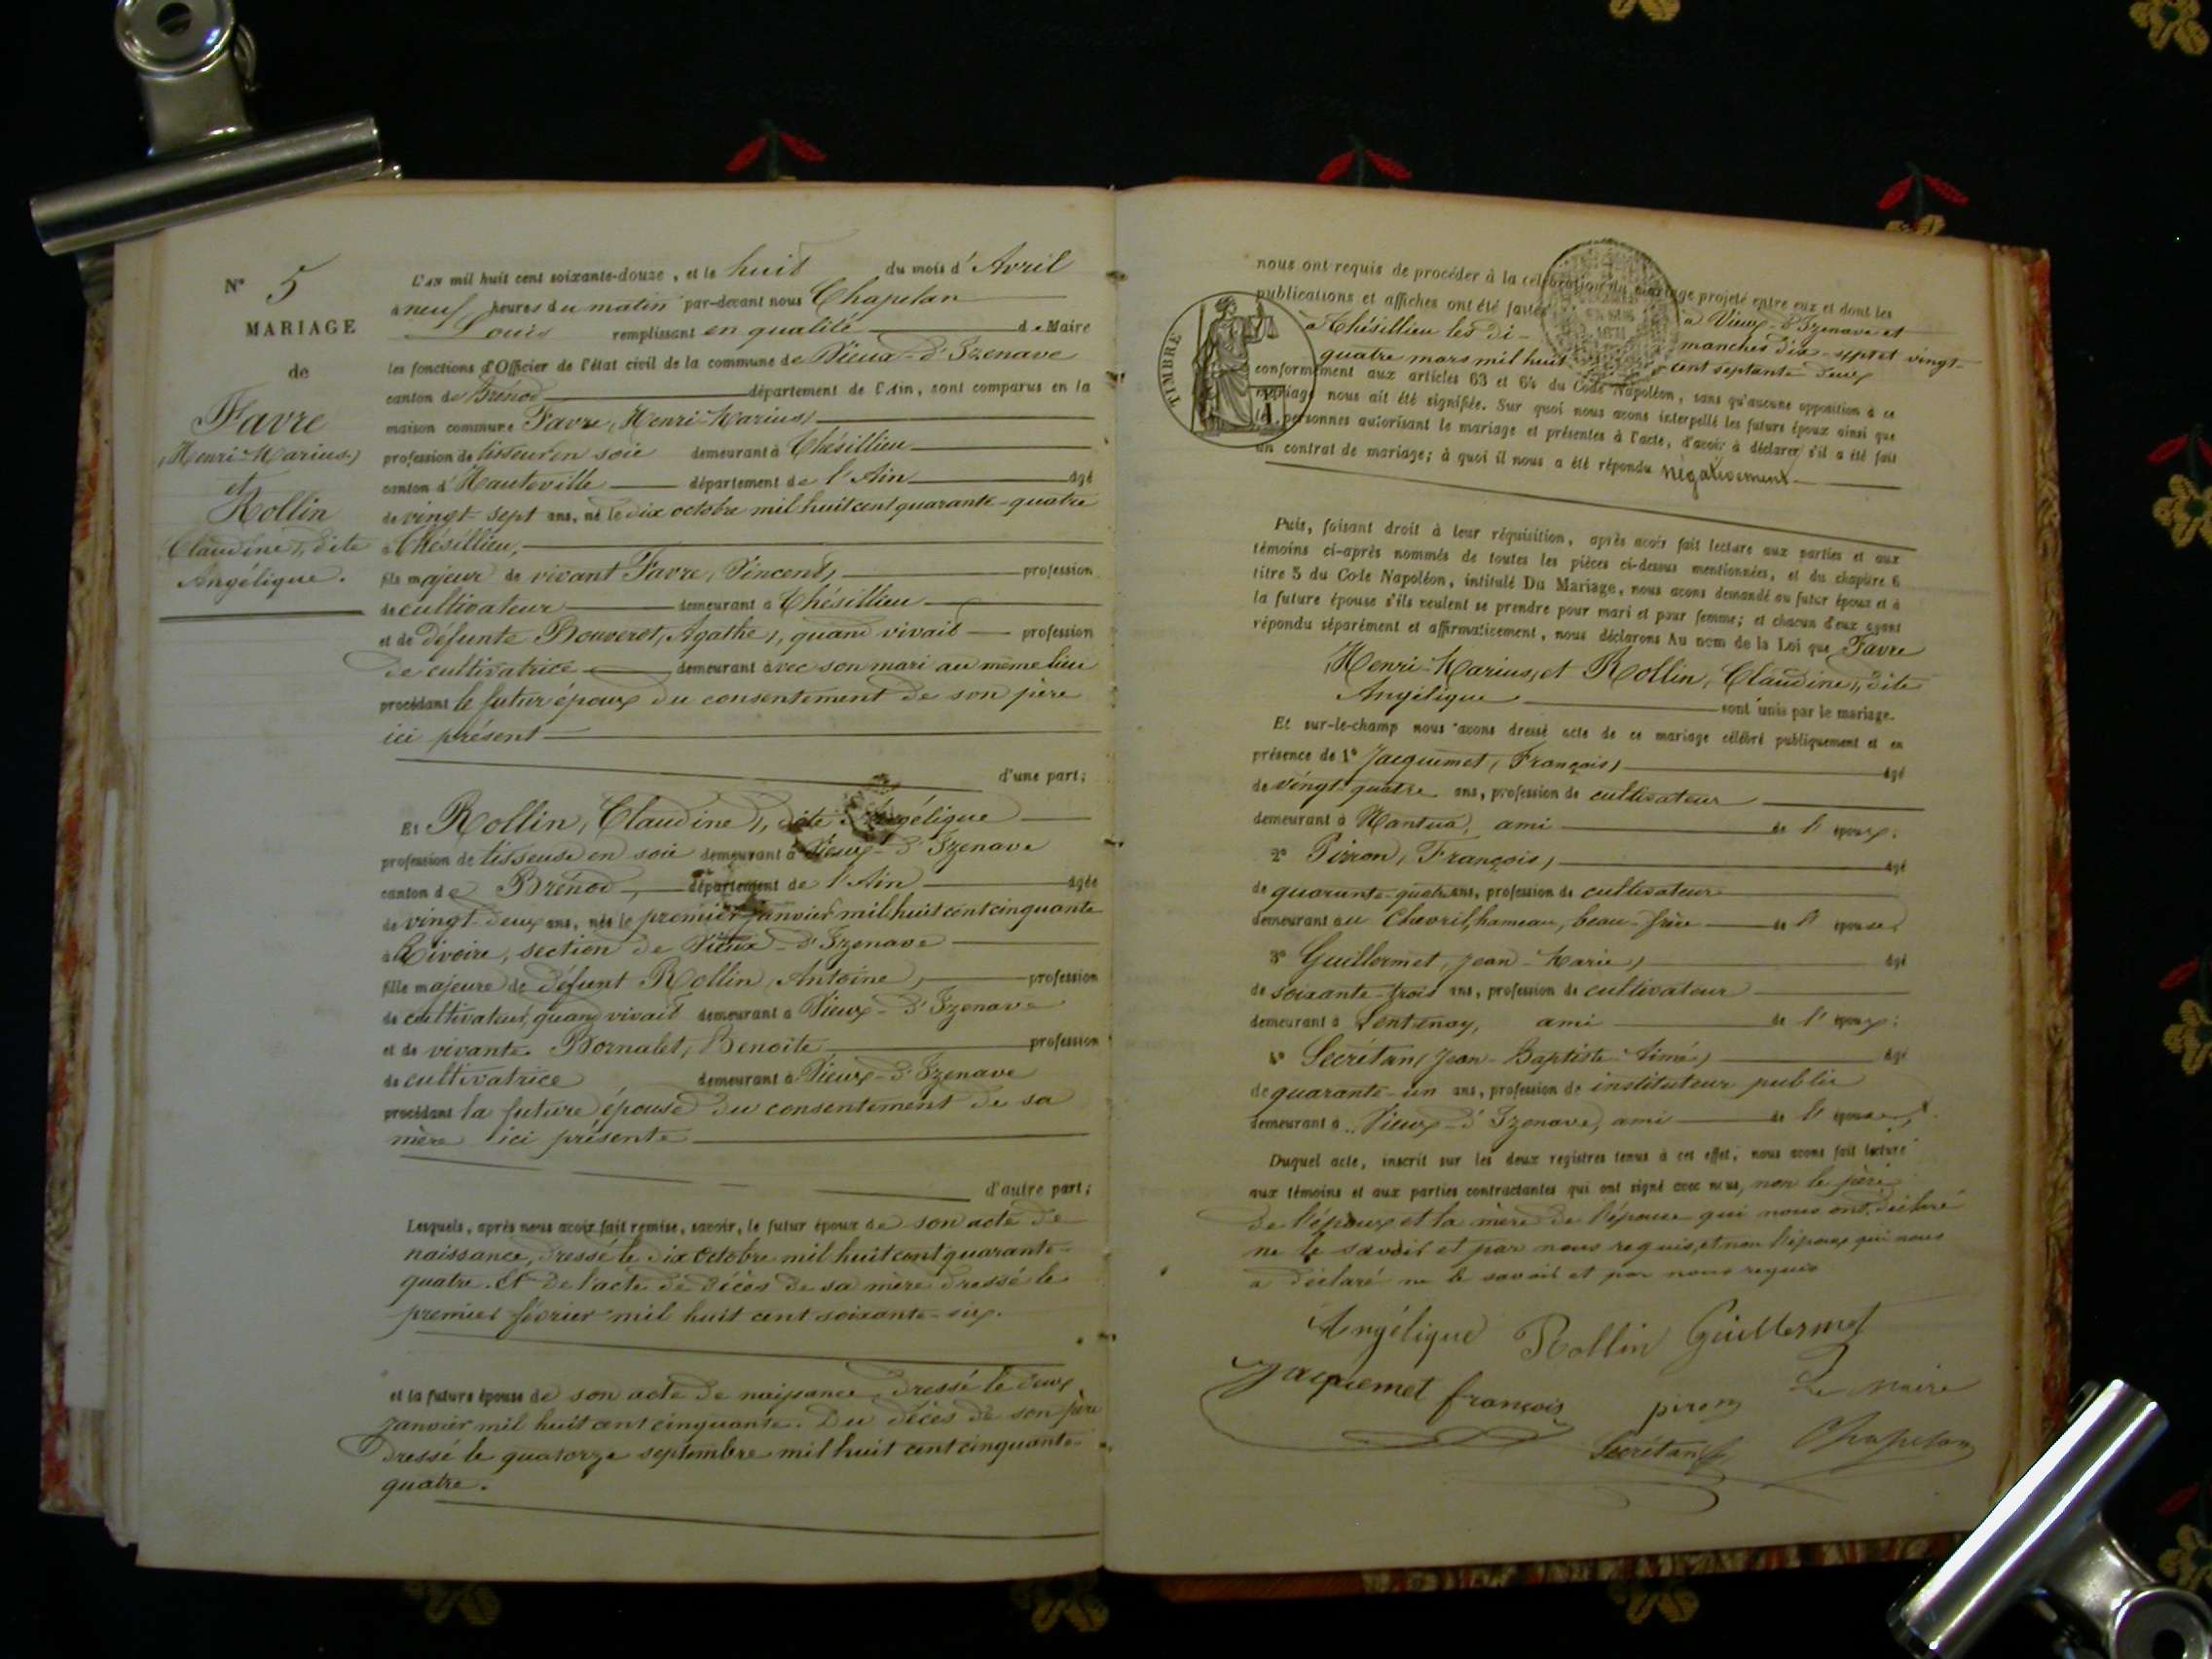 N° 5
MARIAGE
de
Favre
(Henri-Marius)
et
Rollin
(Claudine), dite
Angélique.
L'AN mil huit cent soixante-douze, et le huit du mois d'Avril
à neuf heures du matin par-devant nous Chapelan
Louis remplissant en qualité de Maire
les fonctions d'Officier de l'état civil de la commune de Vieux-d'Izenave
canton de Brénod département de l'Ain, sont comparus en la
maison commune Favre, (Henri-Marius)
profession de tisseur en soie demeurant à Chésillieu
canton d'Hauteville département de l'Ain âgé
de vingt-sept ans, né le dix octobre mil huit cent quarante-quatre
à Chésillieu,
fils majeur de vivant Favre, (Vincent), profession
de cultivateur demeurant à Chésillieu
et de défunte Bouveret, (Agathe), quand vivait profession
de cultivatrice demeurant avec son mari au même lieu
procédant le futur époux du consentement de son père
ici présent
d'une part;
Et Rollin, (Claudine), dite Angélique
profession de tisseuse en soie demeurant à Vieux-d'Izenave
canton de Brénod, département de l'Ain âgée
de vingt-deux ans, née le premier janvier mil huit cent cinquante
à Rivoire, section de Vieux-d'Izenave
fille majeure de défunt Rollin, (Antoine), profession
de cultivateur, quand vivait demeurant à Vieux-d'Izenave
et de vivante Bornalet, (Benoîte profession
de cultivatrice demeurant à Vieux-d'Izenave
procédant la future épouse du consentement de sa
mère ici présente
d'autre part;
Lesquels, après nous avoir fait remise, savoir, le futur époux de son acte de
naissance, dressé le dix octobre mil huit cent quarante-
quatre. Et de l'acte de décès de sa mère dressé le
premier février mil huit cent soixante-six.
et la future épouse de son acte de naissance dressé le deux
janvier mil huit cent cinquante. Du décès de son père
dressé le quatorze septembre mil huit cent cinquante-
quatre.
nous ont requis de procéder à la célébration du mariage projeté entre eux et dont les
publications et affiches ont été faites à Vieux-d'Izenave et
à Chésillieu les di- manches dix-sept et vingt-
quatre mars mil huit cent septante deux
TIMBRE
conformément aux articles 63 et 64 du Code Napoléon, sans qu'aucune opposition à ce
mariage nous ait été signifiée. Sur quoi nous avons interpellé les futurs époux ainsi que
les personnes autorisant le mariage et présentes à l'acte, d'avoir à déclarer s'il a été fait
un contrat de mariage; à quoi il nous a été répondu négativement
Puis, faisant droit à leur réquisition, après avoir fait lecture aux parties et aux
témoins ci-après nommés de toutes les pièces ci-dessus mentionnées, et du chapitre 6
titre 5 du Code Napoléon, intitulé Du Mariage, nous avons demandé au futur époux et à
la future épouse s'ils veulent se prendre pour mari et pour femme; et chacun d'eux ayant
répondu séparément et affirmativement, nous déclarons Au nom de la Loi que Favre
(Henri-Marius), et Rollin, (Claudine), dite
Angélique sont unis par le mariage.
Et sur-le-champ nous avons dressé acte de ce mariage célébré publiquement et en
présence de 1° Jacquemet, (François) âgé
de vingt-quatre ans, profession de cultivateur
demeurant à Nantua, ami de l'époux;
2° Pirron, (François), âgé
de quarante-quatre ans, profession de cultivateur
demeurant au Chevril, hameau, beau-frère de l'épouse;
3° Guillermet, (Jean-Marie) âgé
de soixante-trois ans, profession de cultivateur
demeurant à Lentenay, ami de l'époux;
4° Secrétan (Jean-Baptiste-Aimé) âgé
de quarante-un ans, profession de instituteur public
demeurant à Vieux-d'Izenave, ami de l'épouse;
Duquel acte, inscrit sur les deux registres tenus à cet effet, nous avons fait lecture
aux témoins et aux parties contractantes qui ont signé avec nous, non le père
de l'époux et la mère de l'épouse qui nous ont déclaré
ne le savoir et par nous requis, et non l'époux qui nous
a déclaré ne le savoir et par nous requis
Angélique Rollin Guillermet
Jacquemet françois piron Le Maire
Secrétan Chapelan